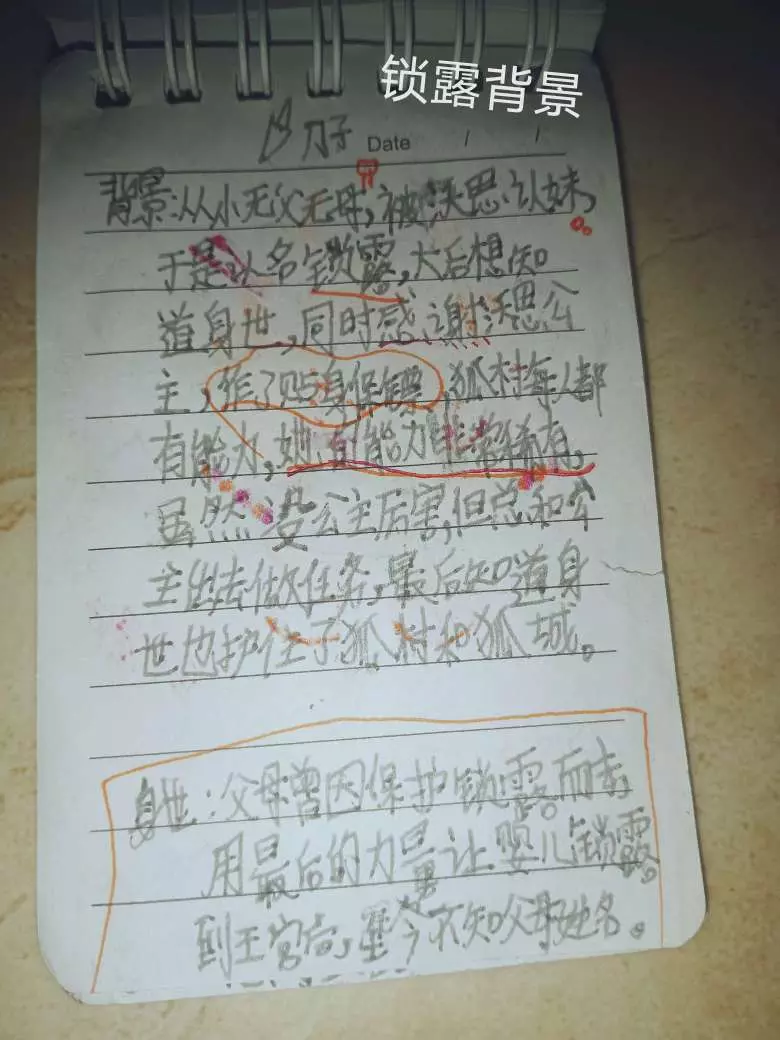 锁露背景
刀子
Date / /
背景:从小无父无母,被沃思认妹,
于是以名锁露,大后想知
道身世,同时感谢沃思公
主,作了贴身保镖,狐村每人都
有能力,她的能力非常稀有,
虽然没公主厉害,但总和公
主出去做任务,最后知道身
世也护住了狐村和狐城。
身世:父母曾因保护锁露而去,
用最后的力量让婴儿锁露
到王宫后,至今不知父母姓名。